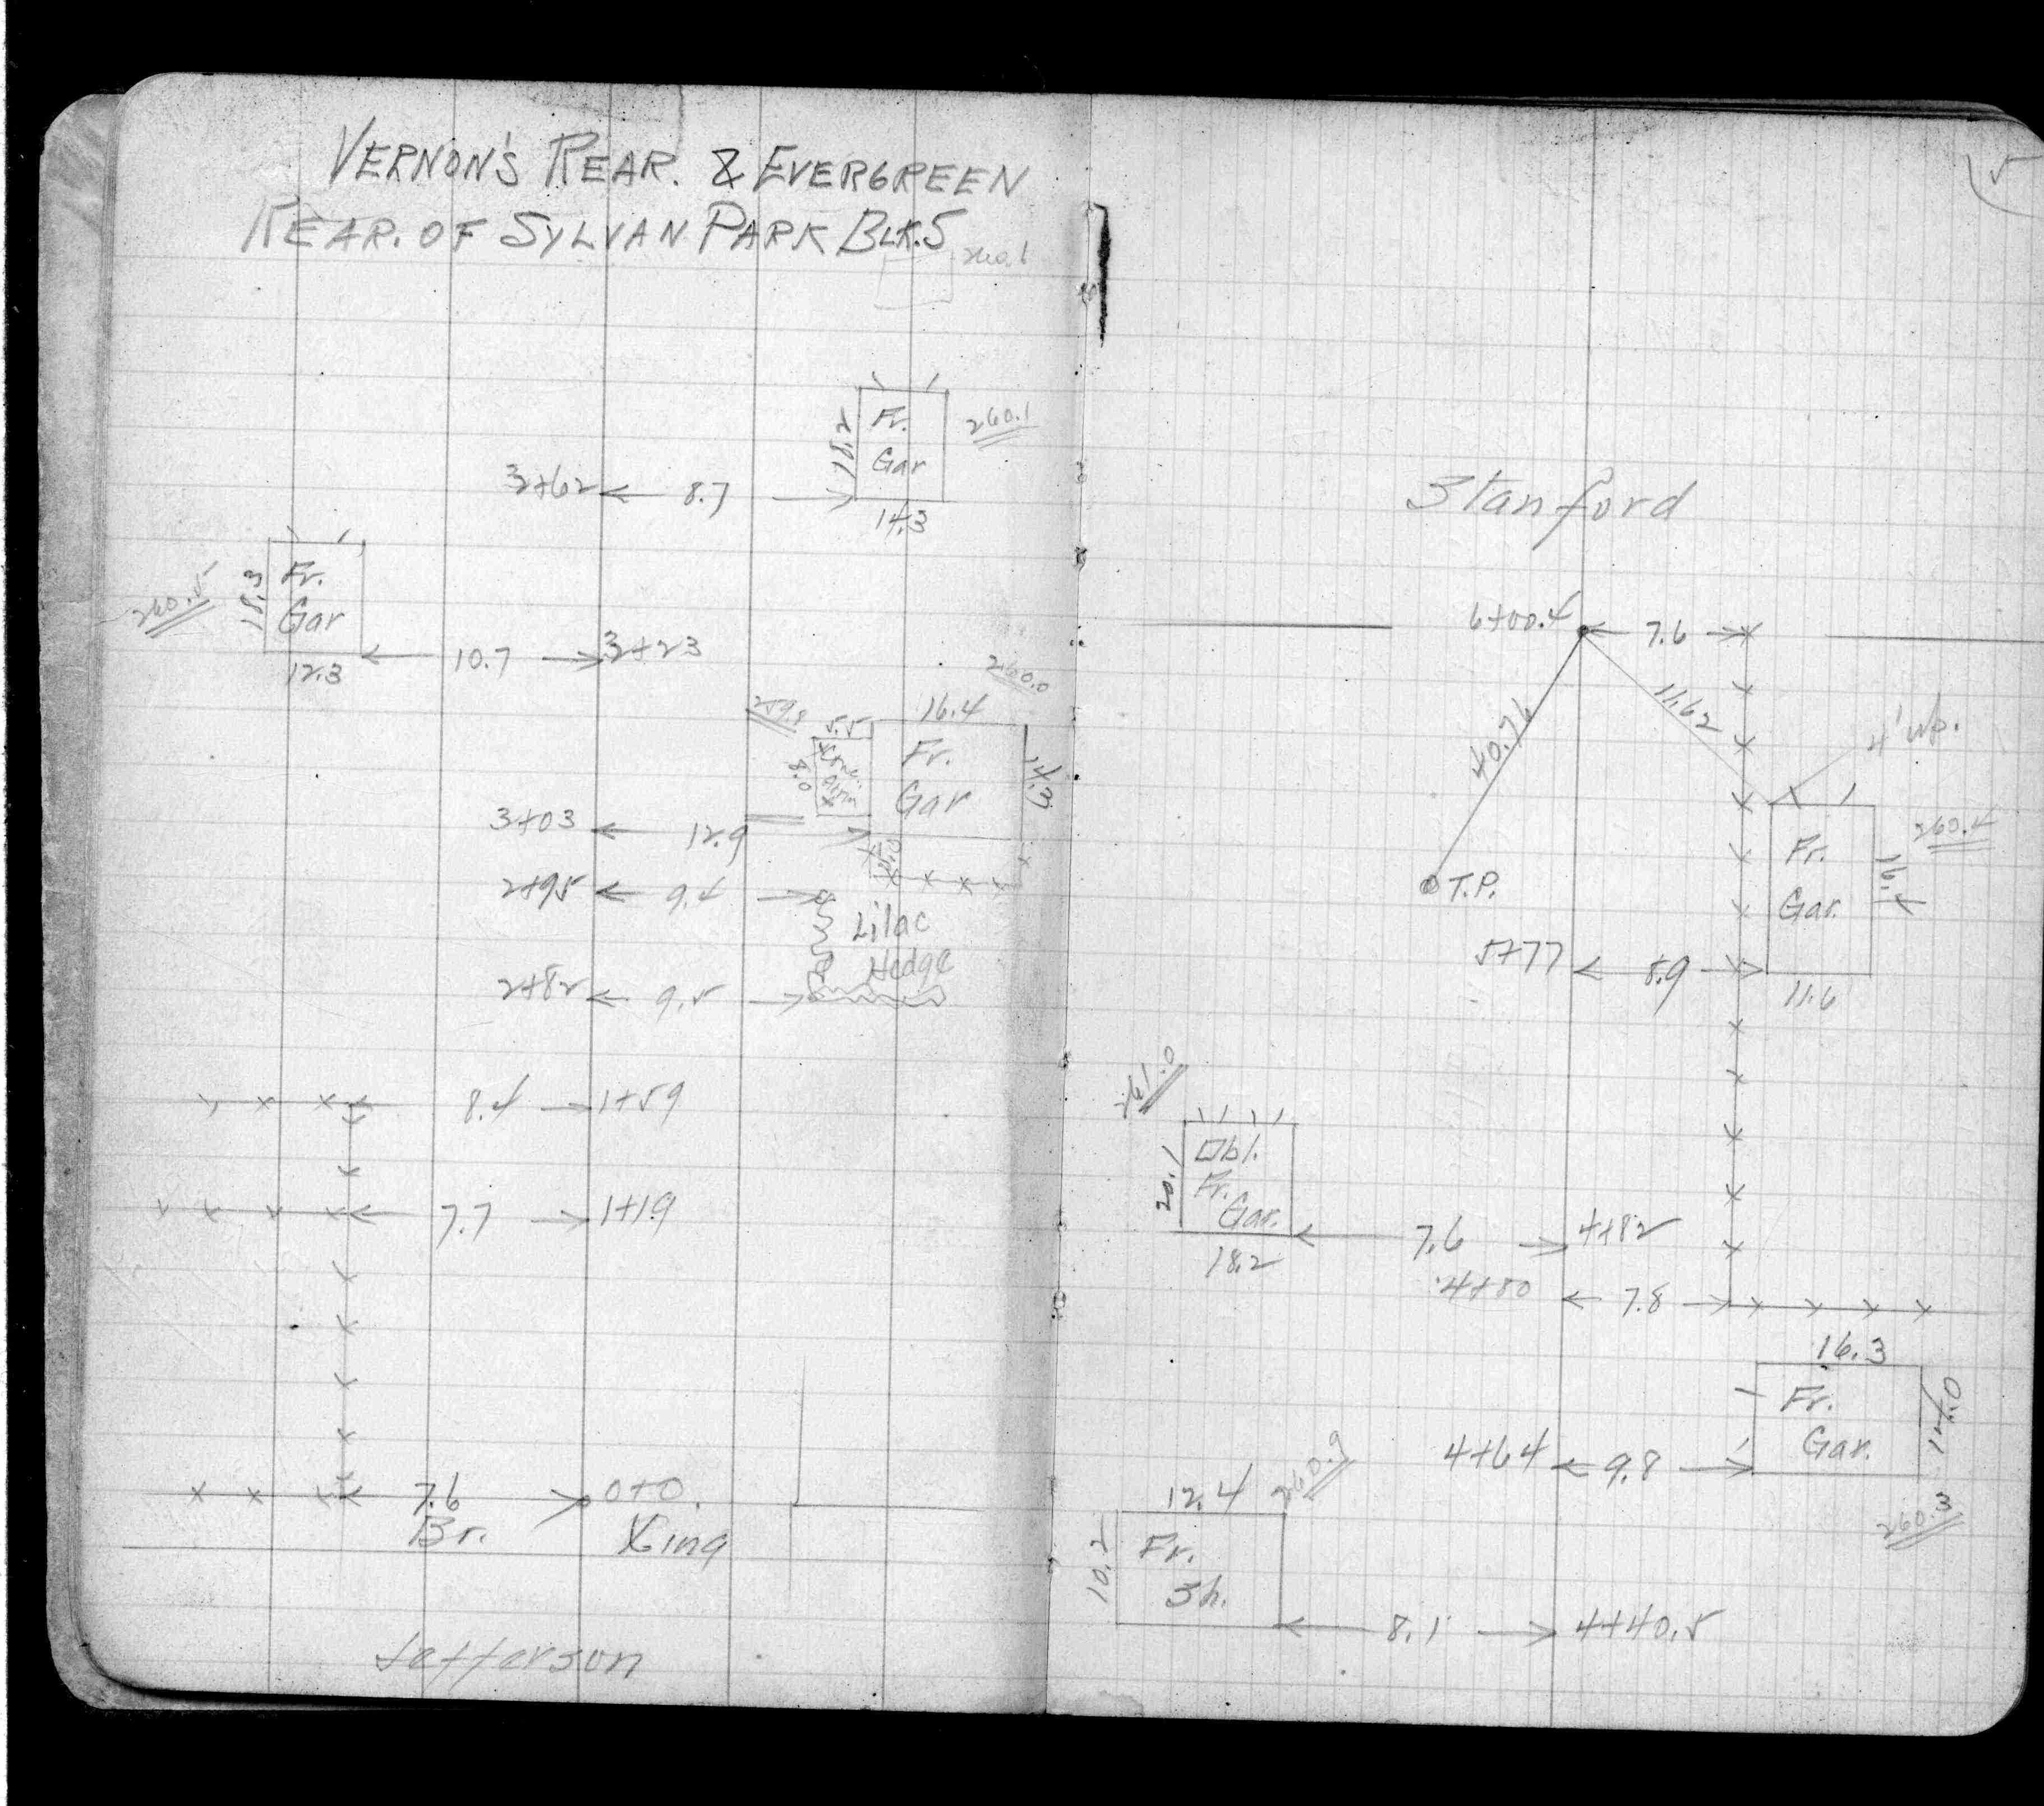 VERNON'S REAR. & EVERGREEN
REAR. OF SYLVAN PARK BLK. 5
260.1
18.2
Fr.
Gar
260.1
3+62 8.7
14.3
260.5
18.3
Fr.
Gar
12.3
10.7 3+23
260.0
259.8
5.5
16.4
8.0
Fr.
Gar
14.3
3+03 12.9
2+95 9.4
Lilac
Hedge
2+82 9.5
8.4 1+59
7.7 1+19
7.6 0+0.
Br. Xing
Jefferson
5
Stanford
6+00.4 7.6
11.62
40.76
4' up.
T.P.
Fr.
Gar.
16.4
260.4
5+77 8.9
11.6
261.0
20.1
Dbl.
Fr.
Gar.
18.2
7.6 4+82
4+80 7.8
16.3
Fr.
Gar.
14.0
4+64 9.8
260.3
12.4
260.9
10.2
Fr.
Sh.
8.1 4+40.5